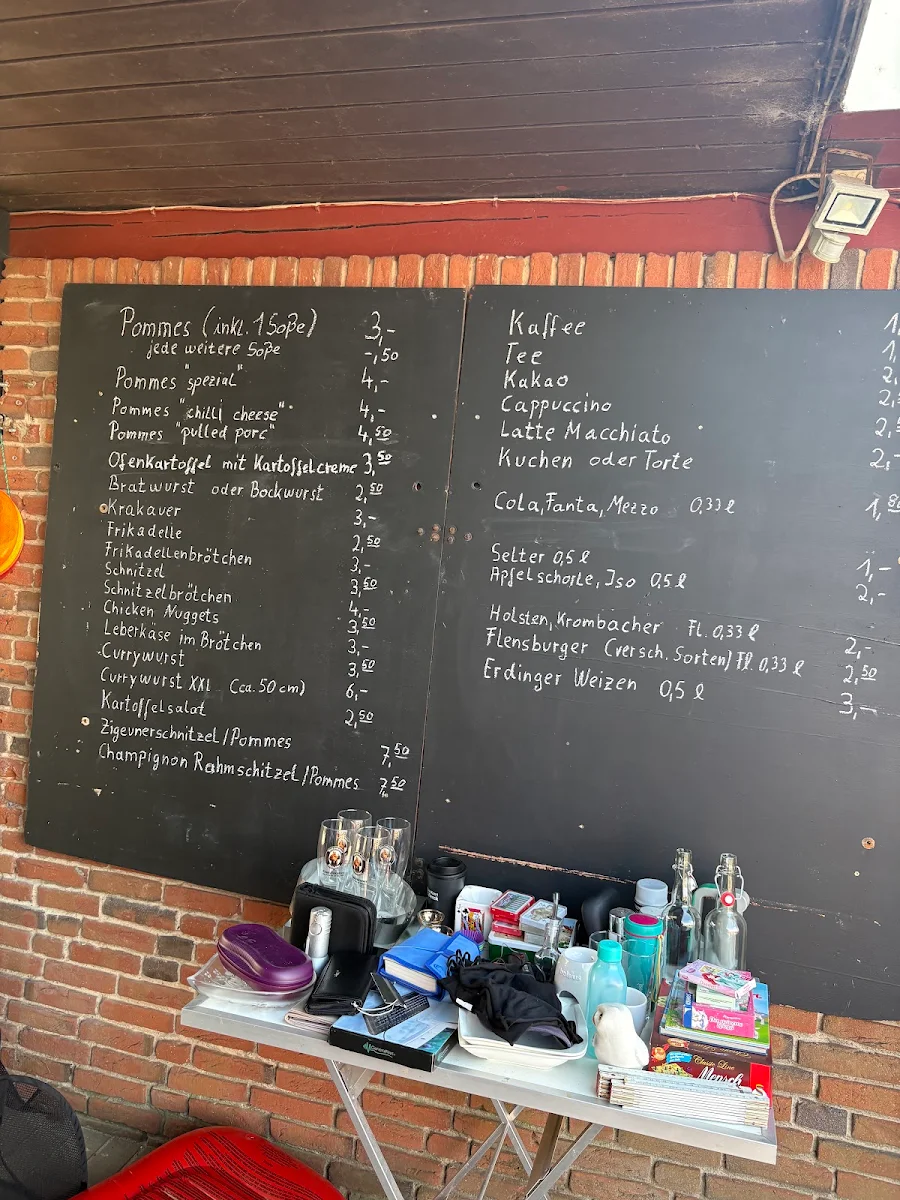 Pommes (inkl. 1 Soße) 3,-
jede weitere Soße -,50
Pommes "spezial" 4,-
Pommes "chilli cheese" 4,-
Pommes "pulled porc" 4,50
Ofenkartoffel mit Kartoffelcreme 3,50
Bratwurst oder Bockwurst 2,50
Krakauer 3,-
Frikadelle 2,50
Frikadellenbrötchen 3,-
Schnitzel 3,50
Schnitzelbrötchen 4,-
Chicken Nuggets 3,50
Leberkäse im Brötchen 3,-
Currywurst 3,50
Currywurst XXL (ca. 50 cm) 6,-
Kartoffelsalat 2,50
Zigeunerschnitzel/Pommes 7,50
Champignon Rahmschitzel/Pommes 7,50
Kaffee 1,
Tee 1,
Kakao 2,
Cappuccino 2,
Latte Macchiato 2,
Kuchen oder Torte 2,-
Cola, Fanta, Mezzo 0,33 l 1,80
Selter 0,5 l 1,-
Apfelschorle, Iso 0,5 l 2,-
Holsten, Krombacher Fl. 0,33 l 2,-
Flensburger (versch. Sorten) Fl. 0,33 l 2,50
Erdinger Weizen 0,5 l 3,-
Mensch